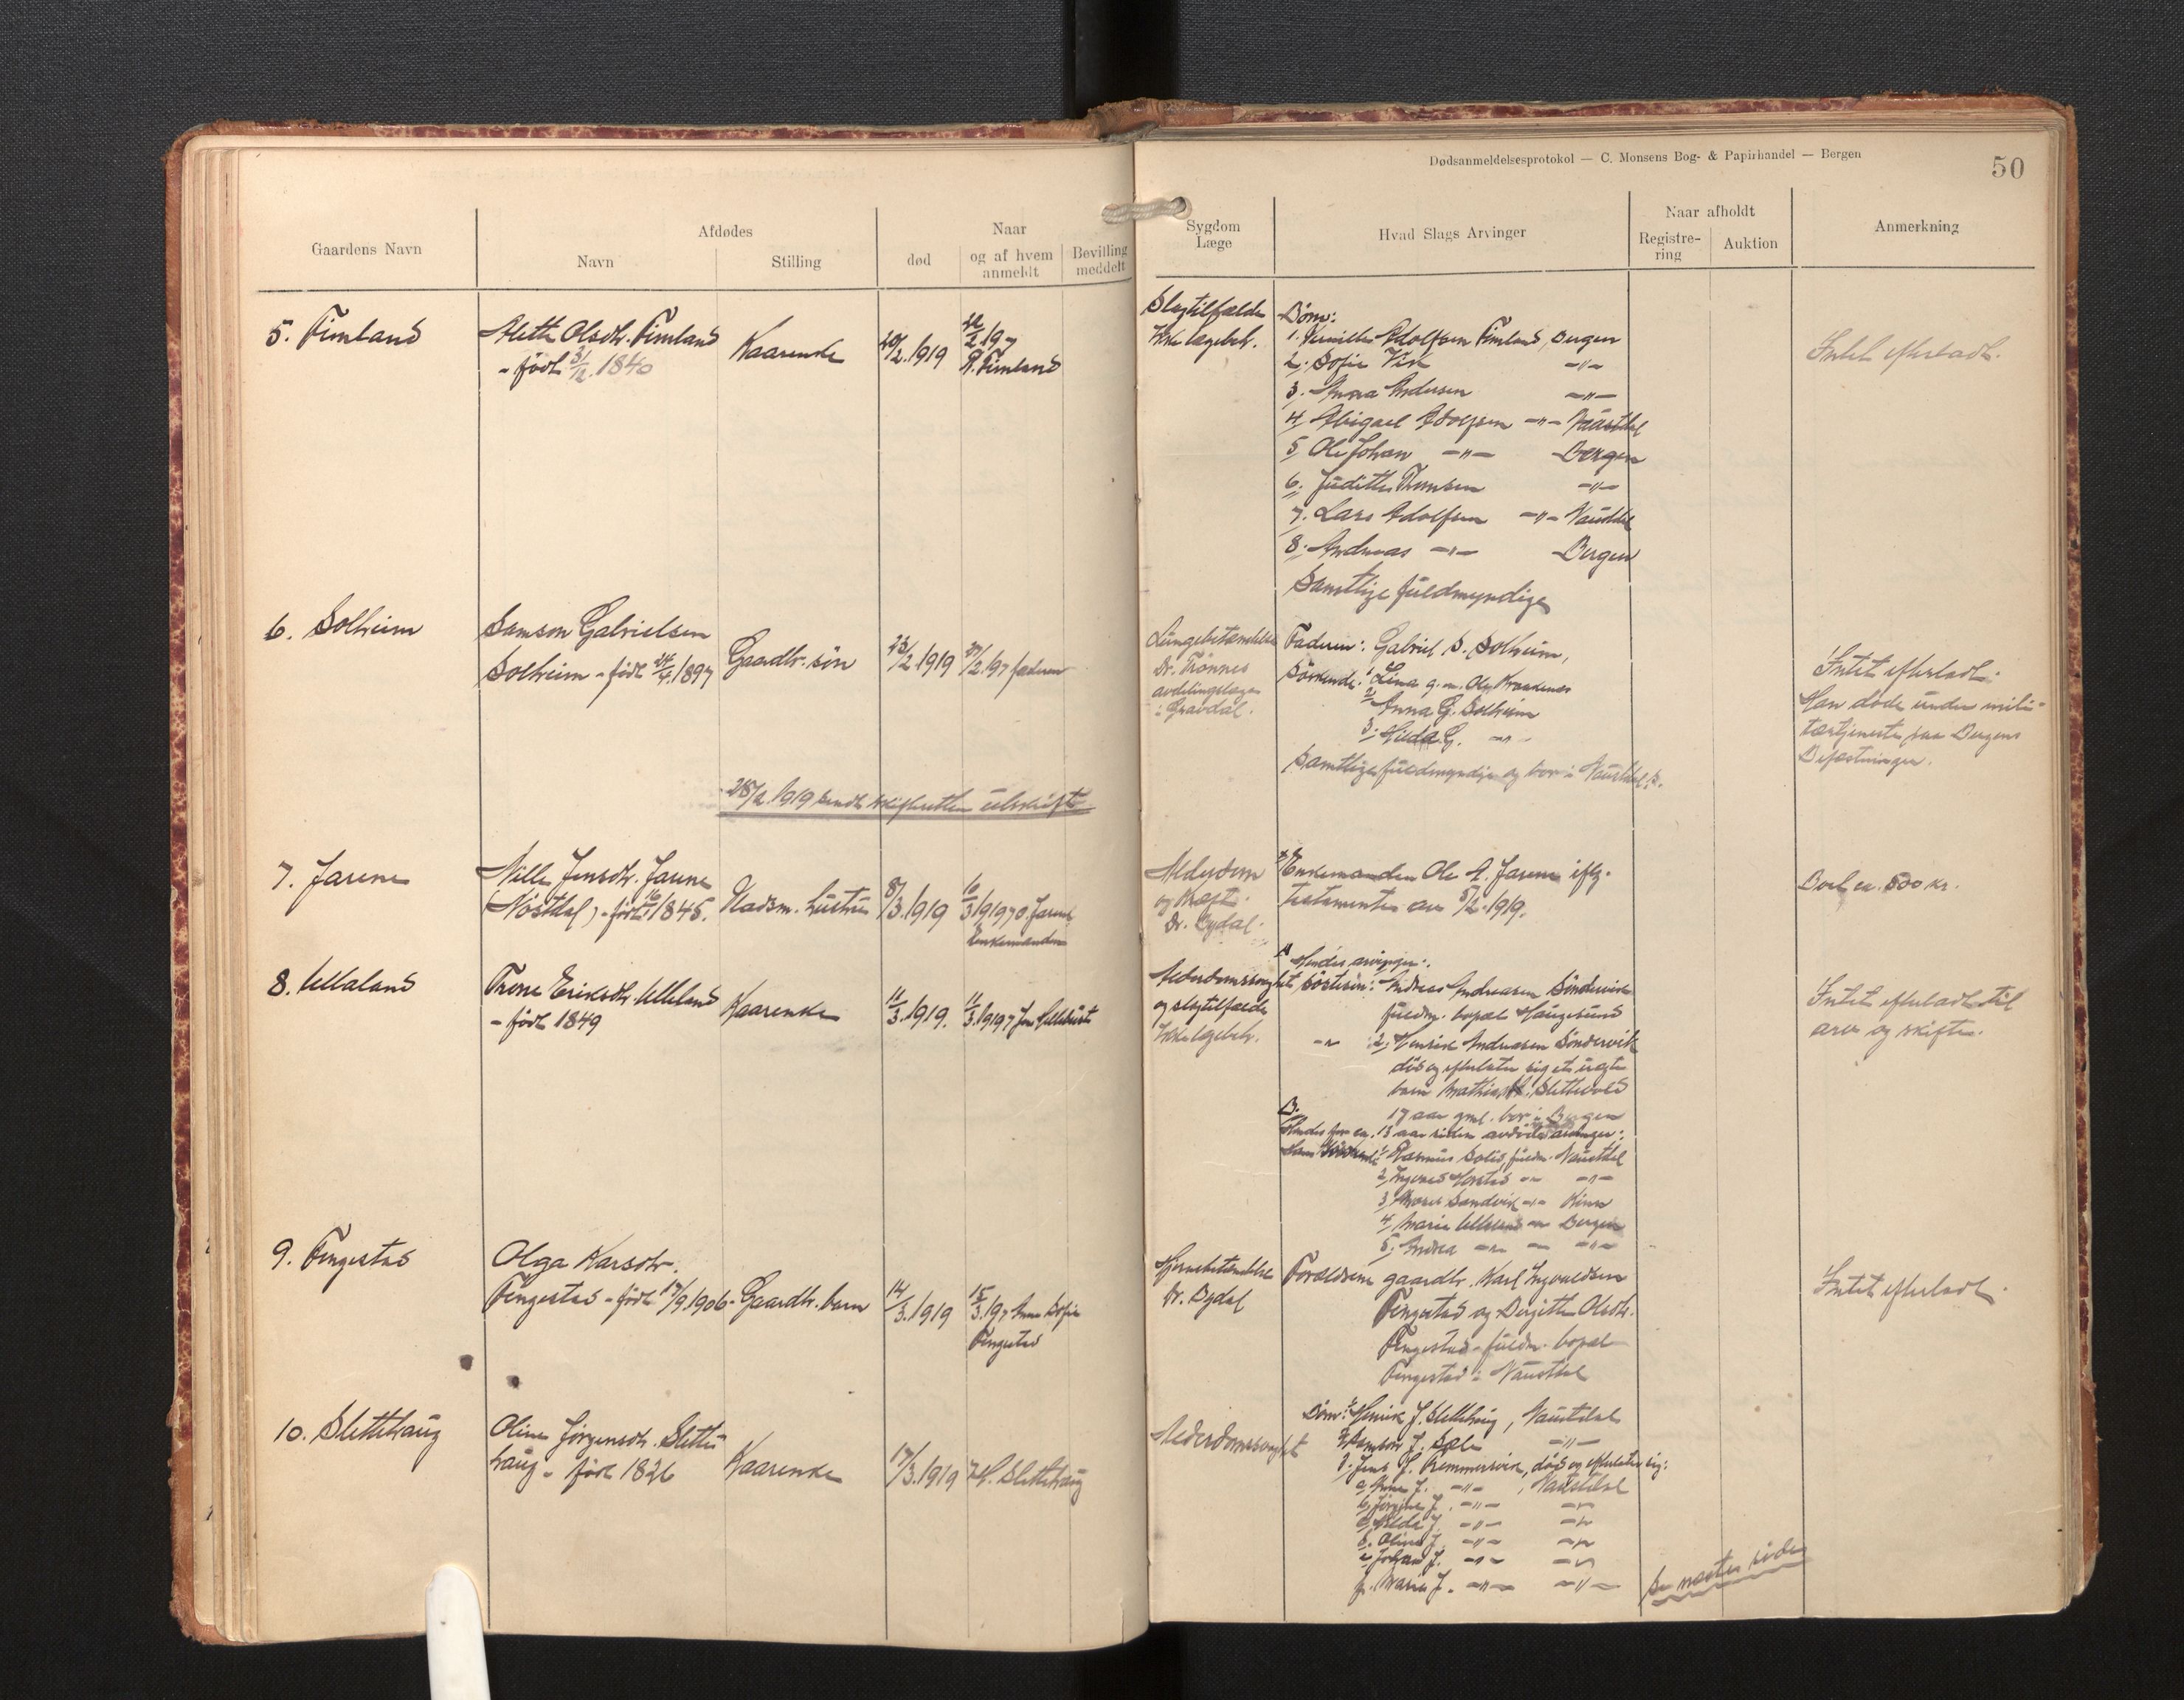 Dødsanmeldelsesprotokol — C. Monsens Bog- & Papirhandel — Bergen
50
Gaardens Navn
Afdødes
Navn
Stilling
Naar
død
og af hvem anmeldt
Bevilling meddelt
Sygdom
Læge
Hvad Slags Arvinger
Naar afholdt
Registre-
ring
Auktion
Anmerkning
5. Fimland
Olsdtr. Fimland
- født 1840
Kaarenke
20/2.1919
Fimland
Slagtilfælde
Ikke lægebeh.
Børn:
1. Adolfsen Fimland, Bergen
2. Sofie Vik -"-
3. Anna Andersen -"-
4. Abigael Adolfsen -"- Naustdal
5. Ole Johan -"- Bergen
6. Judithe Thomsen -"-
7. Lars Adolfsen -"- Naustdal
8. Andreas -"- Bergen
Samtlige fuldmyndige
Intet efterladt.
6. Solheim
Samson Gabrielsen
Solheim - født 1897
Gaardbr. søn
23/2 1919
27/2.19 faderen
Lungebetændelse
Dr. Trønnes
avdelingslæge
i Gravdal.
Faderen: Gabriel S. Solheim,
Søskende: 1. Lina g. m. Ole
2. Anna G. Solheim
3. Hilda G. -"-
Samtlige fuldmyndige og bor i Naustdal s.
Intet efterladt.
Han døde under mili-
tærtjeneste paa Bergens
Befæstninger.
28/2 1919 sendt skifteretten utskrift
7. Jarene
Nille Jensdtr. Jarene
(Nostdal) - født 1845.
Husm. hustru
8/3.1919
10/3 1919 O. Jarene
Enkemanden
Alderdom
og Kræft.
Dr. Bydal.
Enkemanden Ole A. Jarene iflg.
testamente av 5/2.1919.
Boet ca. 500 kr.
8. Ullaland
Trone Eriksdtr. Ulleland
- født 1849
Kaarenke
11/3.1919.
Alderdomssvaghet
og slagtilfælde
Ikke lægebeh.
A Hendes arvinger:
søstersøn: Andreas Andreasen Søndervik
fuldm. bopæl Haugesund
-"- 2. Henrik Andreasen Søndervik
død og efterlater sig et uegte
barn Mathias H. Slettevold
17 aar gml. bor i Bergen
B.
Hendes for ca. 13 aar siden avdøde arvinger:
1. Rasmus Solis, fuldm. Naustdal
3. Sandvik -"- Kinn
4. Marie Ulleland -"- Bergen
5. Andrea -"- -"- -"-
Intet efterladt til
arv og skifte.
9. Fengestad
Olga Karsdtr.
Fengestad - født 17/9.1906
Gaardbr. barn
14/3.1919
15/3.19 Anna Sofie
Fengestad
Hjernebetændelse
Dr. Bydal
Forældrene gaardbr. Karl Ingvaldsen
Fengestad og Birgitte Olsdtr.
Fengestad - fuldm. bopæl
Fengestad i Naustdal
Intet efterladt.
10. Slettehaug
Oline Jørgensdtr. Slette-
haug - født 1826
Kaarenke
17/3.1919
H. Slettehaug
Alderdomssvaghet
Børn: 1. Henrik J. Slettehaug, Naustdal
2. Samson J. -"-
3. Jens J. Remmersvik, død og efterlater sig:
a, Anne J. -"- , Naustdal
b, Jørgine J. -"- -"-
c, Hilda J. -"- -"-
d. Olina J. -"- -"-
e, Johan J. -"- -"-
f. Maria J. -"- -"-
se næste side